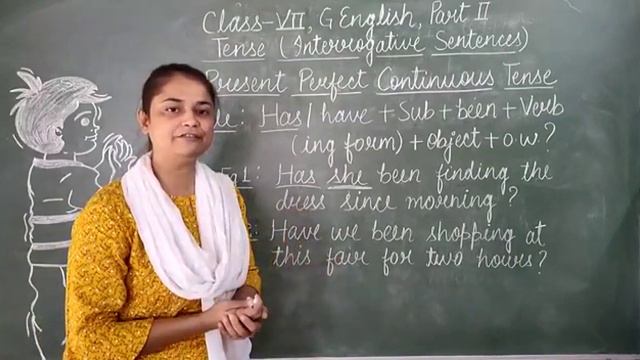 Class-VII, G English, Part II
Tense (Interrogative Sentences)
Present Perfect Continuous Tense
: Has / have + Sub + been + Verb
(ing form) + Object + O.W?
Eg1: Has she been finding the
dress since morning?
: Have we been shopping at
this fair for two hours?